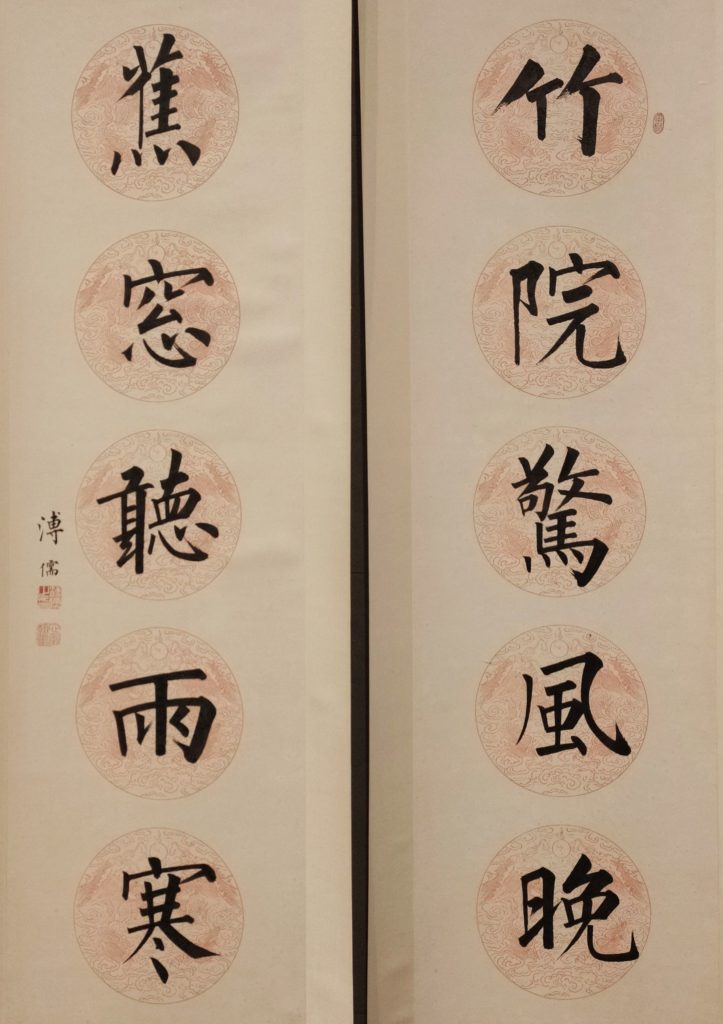 竹院驚風晚
蕉窓聽雨寒
溥儒